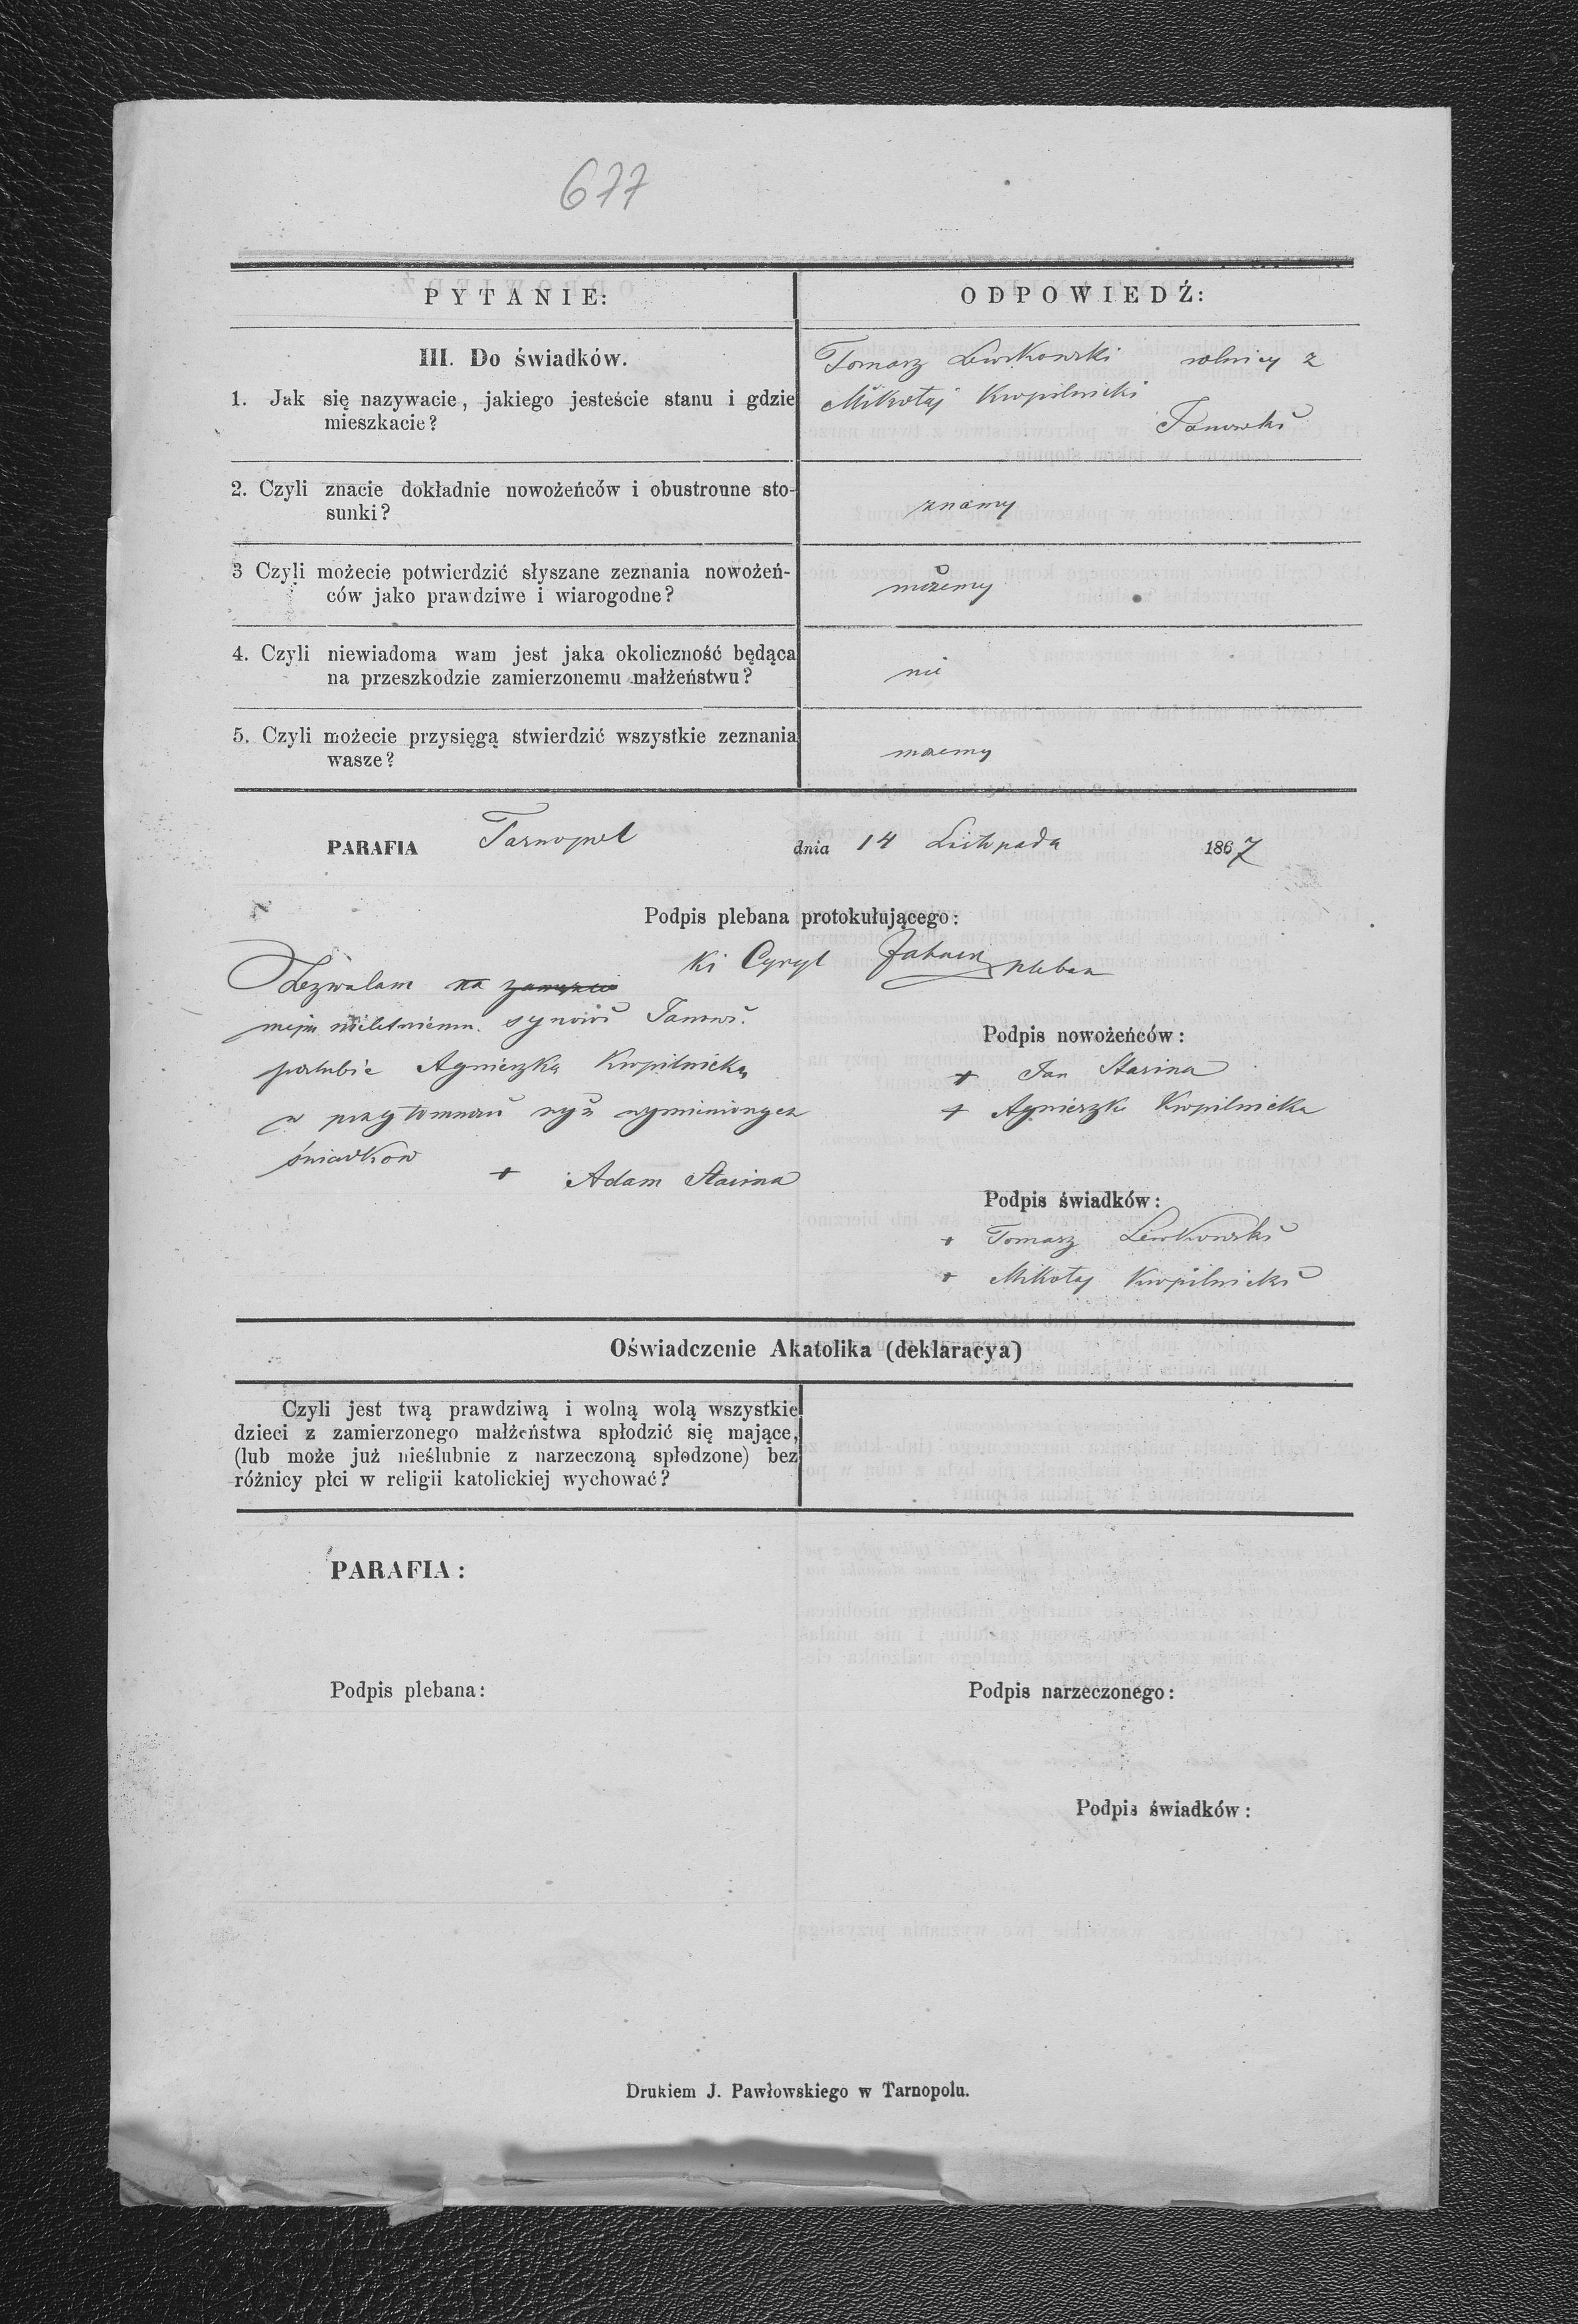 677
PYTANIE:
ODPOWIEDŹ:
III. Do świadków.
1. Jak się nazywacie, jakiego jesteście stanu i gdzie
mieszkacie?
Tomasz Lewkowski rolnicy z
Mikołaj Kropilnicki
2. Czyli znacie dokładnie nowożeńców i obustronne sto-
sunki?
znamy
3 Czyli możecie potwierdzić słyszane zeznania nowożeń-
ców jako prawdziwe i wiarogodne?
możemy
4. Czyli niewiadoma wam jest jaka okoliczność będąca
na przeszkodzie zamierzonemu małżeństwu?
nie
5. Czyli możecie przysięgą stwierdzić wszystkie zeznania
wasze?
możemy
PARAFIA Tarnopol dnia 14 Listopada 1867
Podpis plebana protokułującego:
Cyryl pleban
Zezwalam na
mejmu nieletniemu synowi Janowi
poslubić Agnieszkę Kropilnicką
w przytomności wyż wymienionych
świadków
+ Adam Starina
Podpis nowożeńców:
+ Jan Starina
+ Agnieszka Kropilnicka
Podpis świadków:
+ Tomasz Lewkowski
+ Mikołaj Kropilnicki
Oświadczenie Akatolika (deklaracya)
Czyli jest twą prawdziwą i wolną wolą wszystkie
dzieci z zamierzonego małżeństwa spłodzić się mające,
(lub może już nieślubnie z narzeczoną spłodzone) bez
różnicy płci w religii katolickiej wychować?
PARAFIA:
Podpis plebana:
Podpis narzeczonego:
Podpis świadków:
Drukiem J. Pawłowskiego w Tarnopolu.